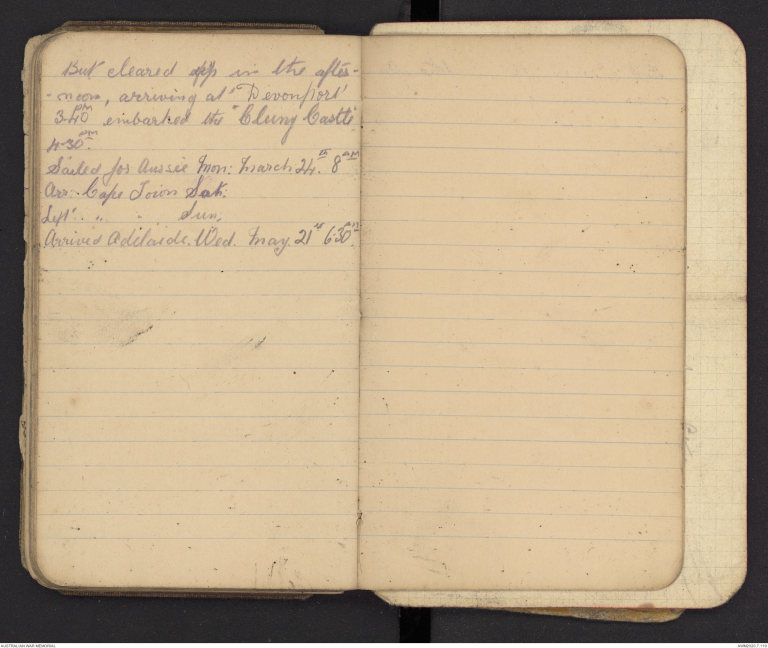 But cleared up in the after-
-noon, arriving at "Devonport'
3-40 pm embarked the "Cluny Castle"
4-30 pm.
Sailed for Aussie Mon: March 24th. 8 am
Arr. Cape Town Sat:
Left " " Sun.
Arrived Adelaide. Wed. May. 21st 6-30
AUSTRALIAN WAR MEMORIAL
AWM2020.7.119